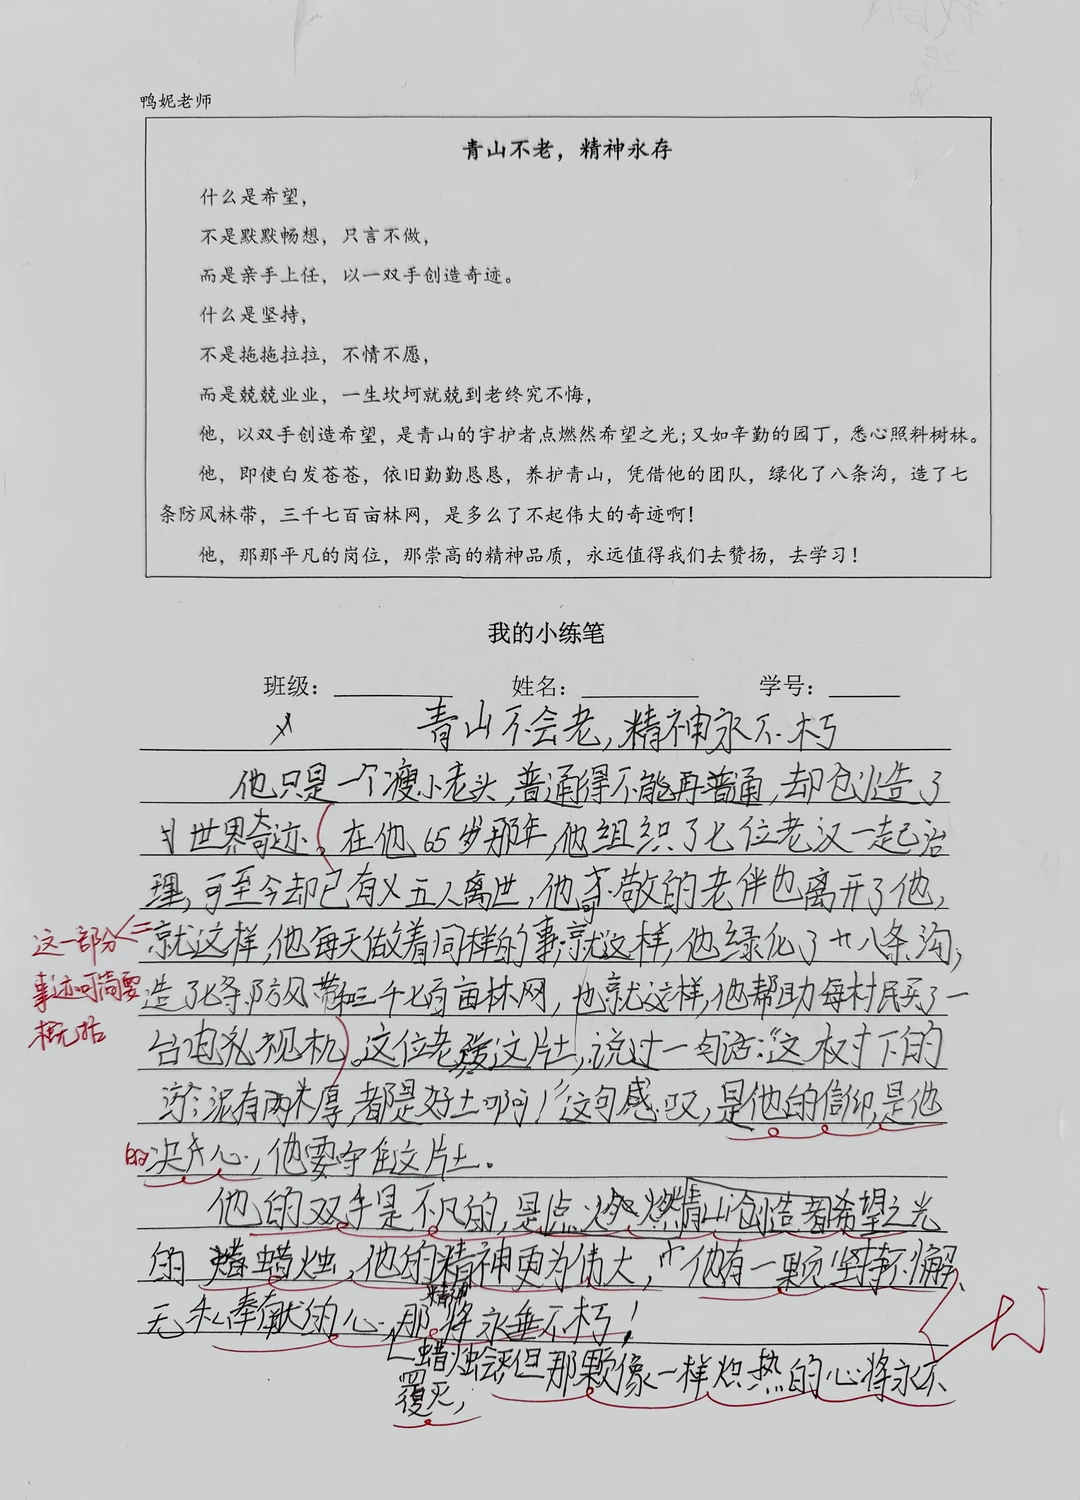 鸭妮老师
青山不老，精神永存
什么是希望，
不是默默畅想，只言不做，
而是亲手上任，以一双手创造奇迹。
什么是坚持，
不是拖拖拉拉，不情不愿，
而是兢兢业业，一生坎坷就兢到老终究不悔，
他，以双手创造希望，是青山的守护者点燃然希望之光；又如辛勤的园丁，悉心照料树林。
他，即使白发苍苍，依旧勤勤恳恳，养护青山，凭借他的团队，绿化了八条沟，造了七
条防风林带，三千七百亩林网，是多么了不起伟大的奇迹啊！
他，那那平凡的岗位，那崇高的精神品质，永远值得我们去赞扬，去学习！
我的小练笔
班级： 姓名： 学号：
青山不会老，精神永不朽
他只是一个瘦小老头，普通得不能再普通，却创造了
世界奇迹。在他65岁那年，他组织了七位老汉一起治
理，可至今却已有五人离世，他的老伴也离开了他，
就这样，他每天做着同样的事；就这样，他绿化了八条沟，
造了七条防风带和三千七百亩林网，也就这样，他帮助每村民买了一
台电视机。这位老这片土，说过一句话：“这树下的
淤泥有两米厚，都是好土啊！”这句感叹，是他的信仰，是他
的决心，他要守住这片土。
他的双手是不凡的，是点燃青山创造者希望之光
的蜡烛，他的精神更为伟大，他有一颗坚持不懈、
无私奉献的心，那精神将永垂不朽！
蜡烛会但那颗像一样炽热的心将永不
覆灭，
这一部分
事迹可简要
概括